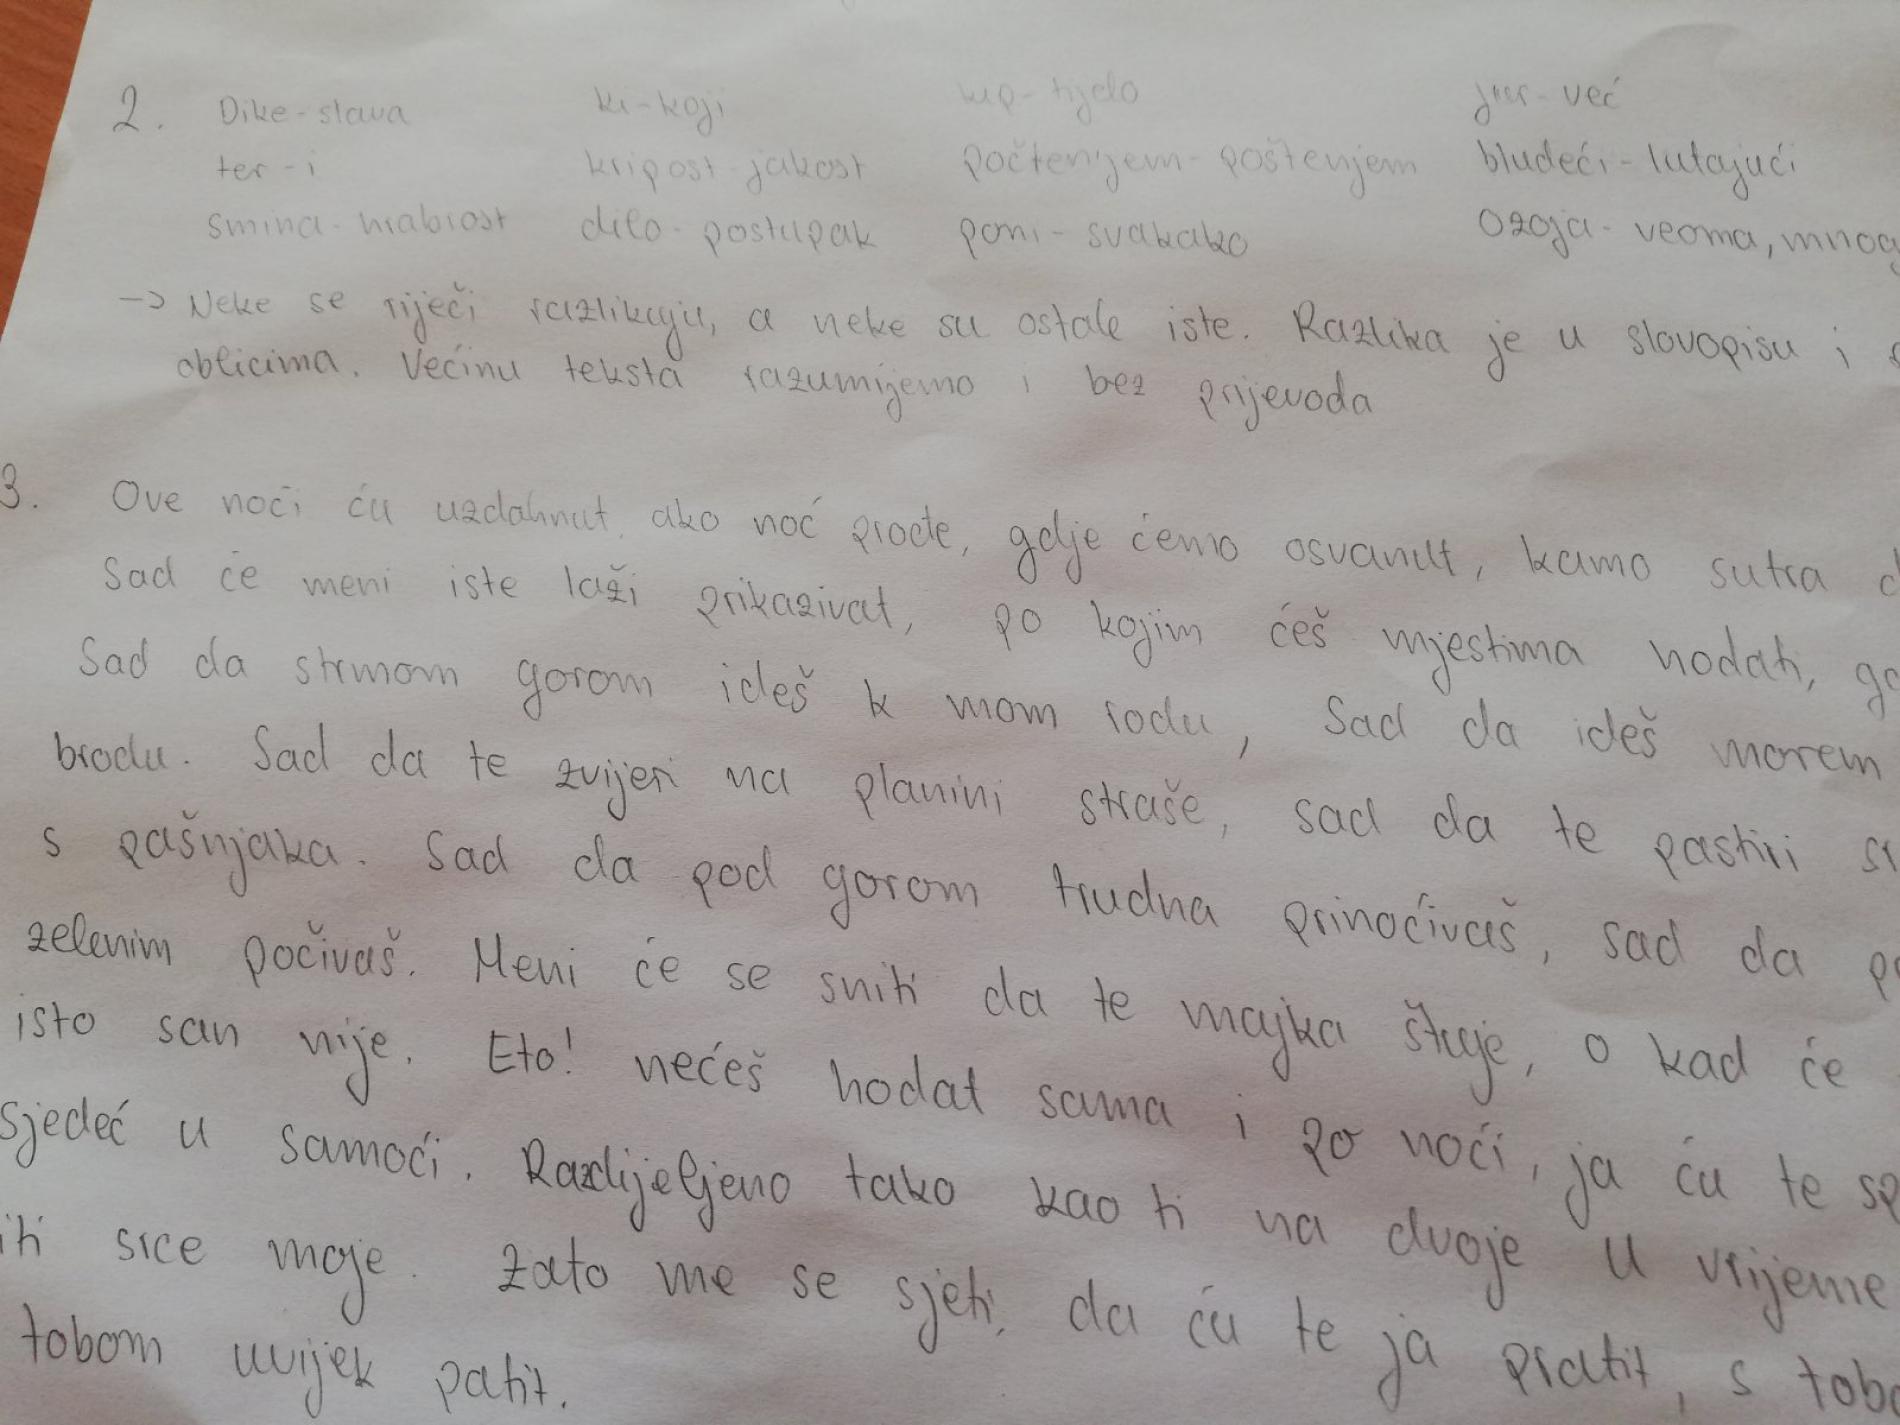 2. Dike-slava ki-koji kip-tijelo jur-već
ter-i kripost-jakost počtenjem-poštenjem bludeći-lutajući
smina-hrabrost dilo-postupak poni-svakako ozoja-veoma, mnog
-> Neke se riječi razlikuju, a neke su ostale iste. Razlika je u slovopisu i
oblicima. Većinu teksta razumijemo i bez prijevoda
3. Ove noći ću uzdahnut, ako noć prođe, gdje ćemo osvanut, kamo sutra
Sad će meni iste laži prikazivat, po kojim ćeš mjestima hodati,
Sad da strmom gorom ideš k mom rodu, Sad da ideš morem
brodu. Sad da te zvijeri na planini straše, sad da te pastiri
s pašnjaka. Sad da pod gorom trudna prinoćivaš, sad da
zelenim počivaš. Meni će se sniti da te majka štuje, o kad će
isto san nije. Eto! nećeš hodat sama i po noći, ja ću te
sjedeć u samoći. Razdijeljeno tako kao ti na dvoje u vrijeme
iti srce moje. Zato me se sjeti, da ću te ja pratit, s tobo
tobom uvijek patit.